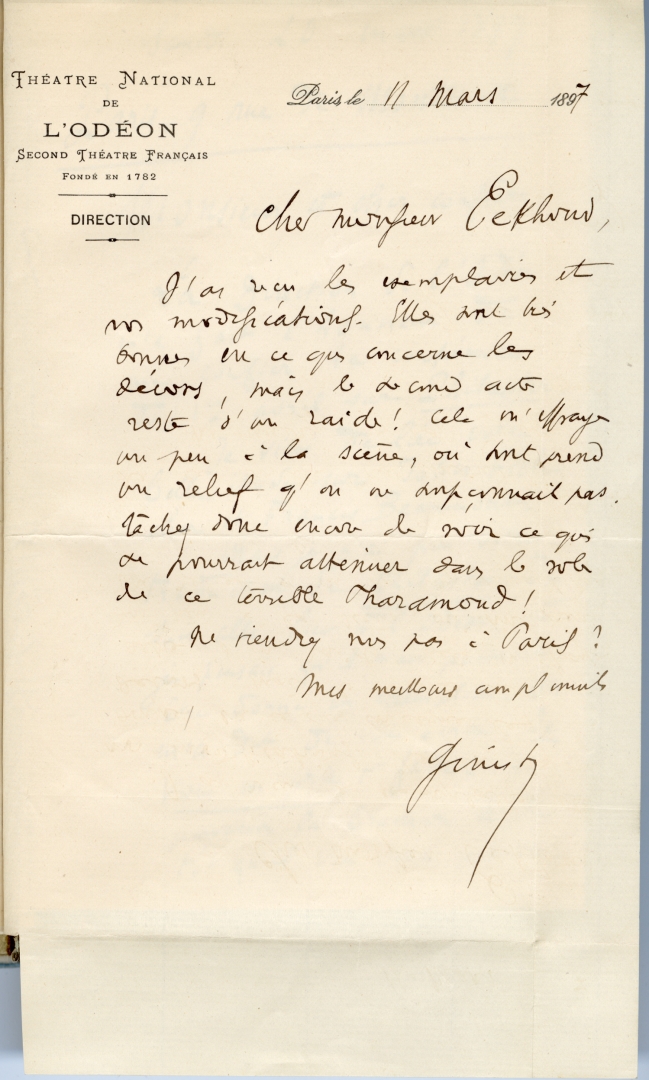 THÉATRE NATIONAL
DE
L'ODÉON
SECOND THÉATRE FRANÇAIS
FONDÉ EN 1782
DIRECTION
Paris, le 11 Mars 1897
Cher Monsieur Eekhoud,
J'ai reçu les exemplaires et
vos modifications. Elles sont très
bonnes en ce qui concerne les
décors, mais le second acte
reste d'un raide! Cela m'effraye
un peu à la scène, où tout prend
un relief qu'on ne soupçonnait pas.
Tâchez donc encore de voir ce qui
se pourrait atténuer dans le role
de ce terrible Pharamond!
Ne viendrez vous pas à Paris?
Mes meilleurs compliments
Ginisty